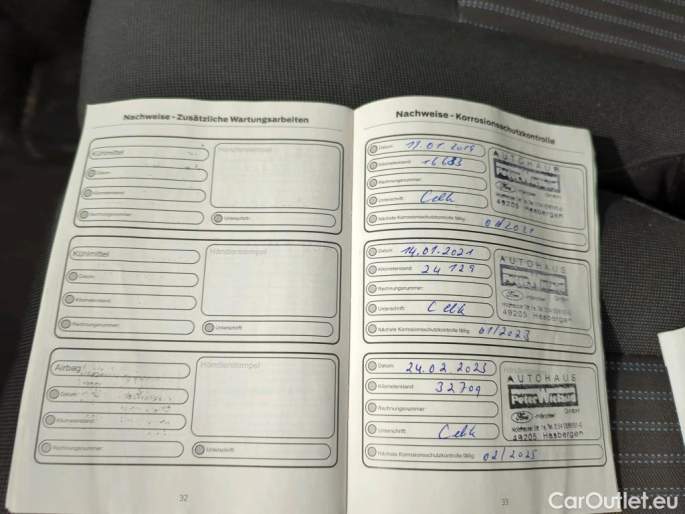 Nachweise - Zusätzliche Wartungsarbeiten
Kühlmittel
Händlerstempel
Datum:
Kilometerstand:
Rechnungsnummer:
Unterschrift:
Kühlmittel
Händlerstempel
Datum:
Kilometerstand:
Rechnungsnummer:
Unterschrift:
Airbag
Händlerstempel
Datum:
Kilometerstand:
Rechnungsnummer:
Unterschrift:
32
Nachweise - Korrosionsschutzkontrolle
Datum: 17.01.2019
Kilometerstand:
Rechnungsnummer:
Unterschrift:
Nächste Korrosionsschutzkontrolle fällig:
AUTOHAUS
Ford
49205 Hasbergen
Datum: 14.01.2021
Kilometerstand: 24 129
Rechnungsnummer:
Unterschrift:
Nächste Korrosionsschutzkontrolle fällig: 01/2023
AUTOHAUS
Ford -Händler GmbH
49205 Hasbergen
Datum: 24.02.2023
Kilometerstand: 32709
Rechnungsnummer:
Unterschrift:
Nächste Korrosionsschutzkontrolle fällig: 02/2025
AUTOHAUS
Peter Wiebold
Ford -Händler GmbH
49205 Hasbergen
33
CarOutlet.eu